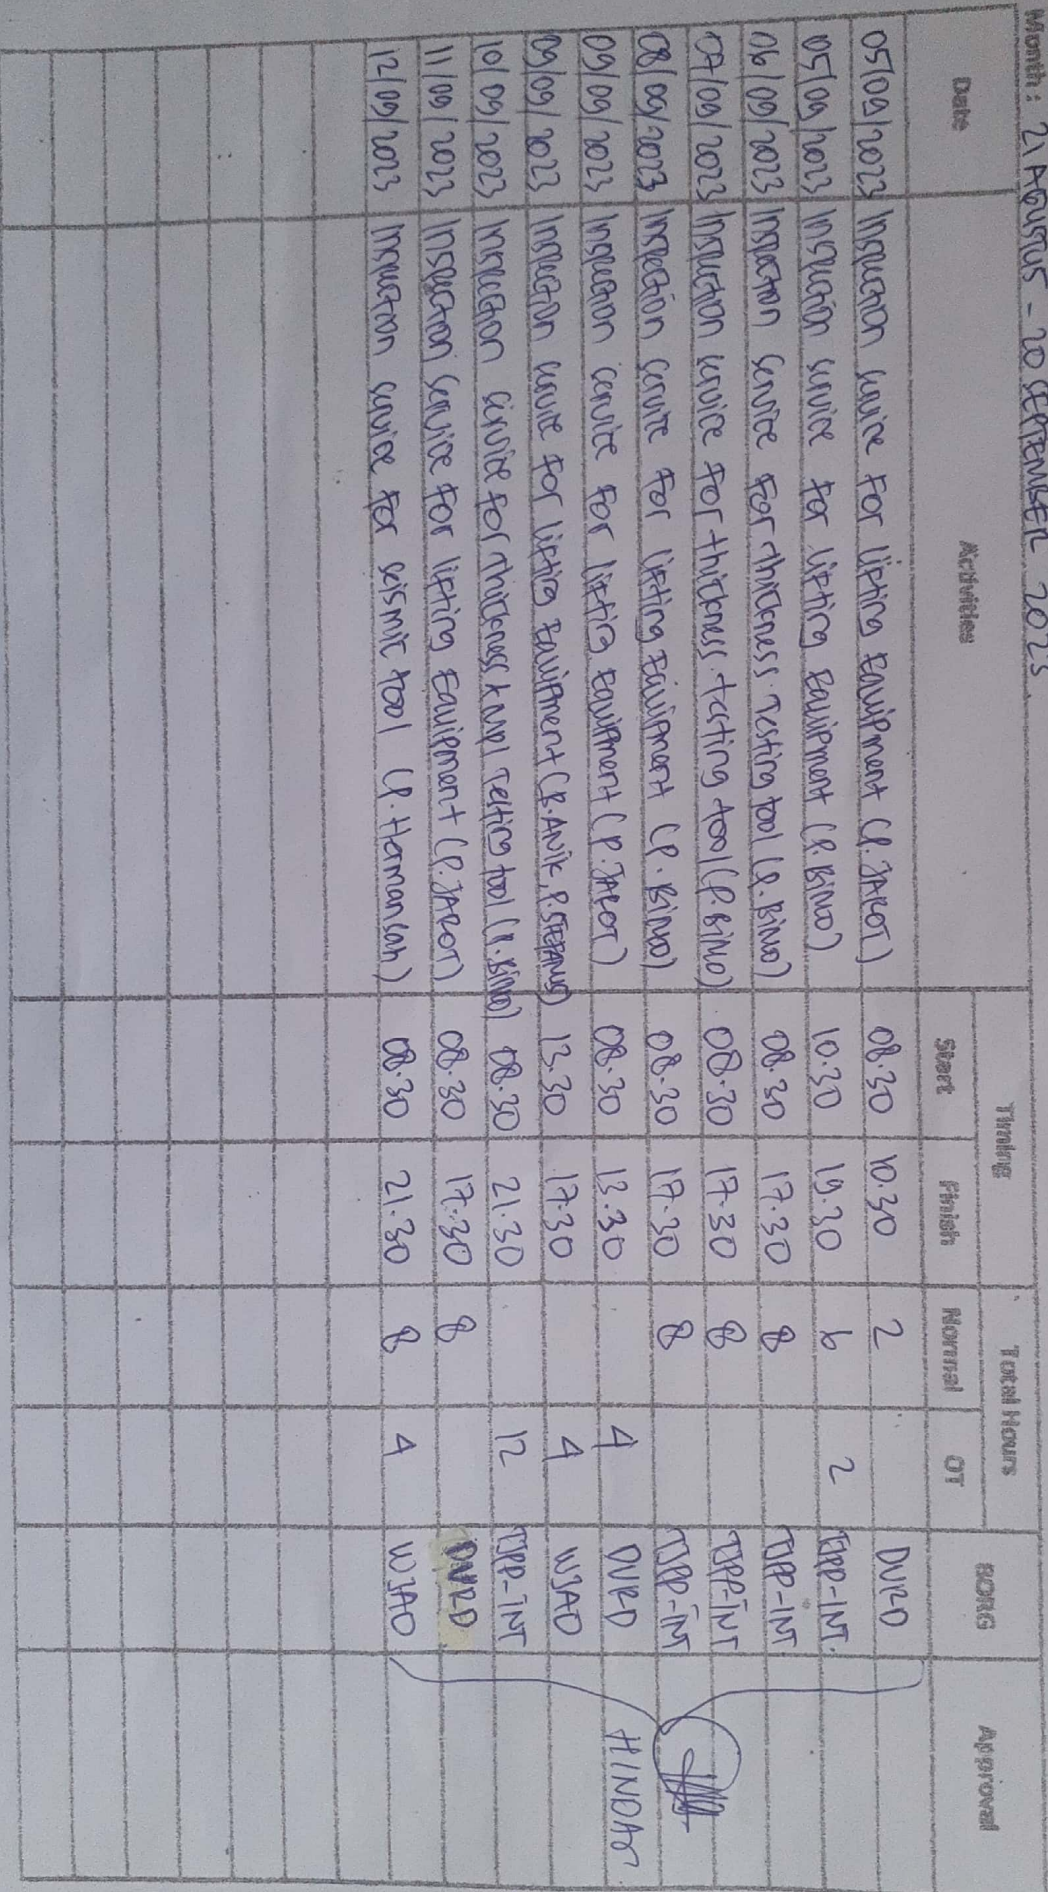 Month : 21 AGUSTUS - 20 SEPTEMBER 2023
Date Activities Timing Total Hours BORG Approval
Start Finish Normal OT
05/09/2023 Inspection service For lifting Equipment (P. JAROT) 08.30 10.30 2 DVRD
05/09/2023 Inspection service for lifting Equipment (P. BIMO) 10.30 19.30 6 2 TJPP-INT.
06/09/2023 Inspection service For thickness testing tool (P. BIMO) 08.30 17.30 8 TJPP-INT
07/09/2023 Inspection service For thickness testing tool (P. BIMO) 08.30 17.30 8 TJPP-INT
08/09/2023 Inspection service For lifting Equipment (P. BIMO) 08.30 17.30 8 TJPP-INT
09/09/2023 Inspection service For lifting Equipment (P. JAROT) 08.30 13.30 4 DVRD HINDAr
09/09/2023 Inspection service For lifting Equipment (B. ANIK, P. STEPANUS) 13.30 17.30 4 WJAO
10/09/2023 Inspection service for thickness & MPI Testing tool (P. BIMO) 08.30 21.30 12 TJPP-INT
11/09/2023 Inspection service For lifting Equipment (P. JAROT) 08.30 17.30 8 DVRD
12/09/2023 Inspection service For seismic tool (P. Hermansah) 08.30 21.30 8 4 WJAO